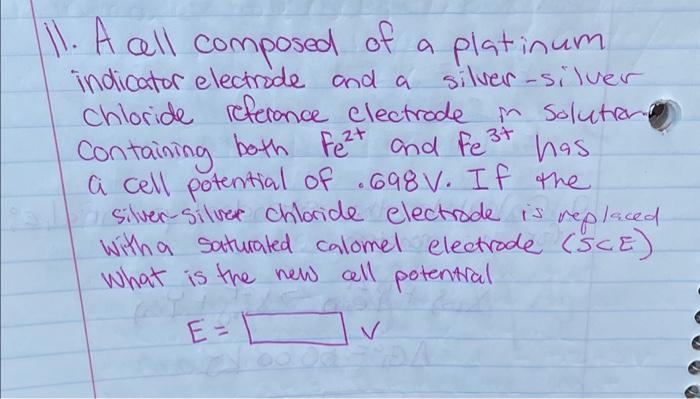 11. A cell composed of a platinum
indicator electrode and a silver-silver
chloride referance electrode in solution
containing both Fe²⁺ and Fe³⁺ has
a cell potential of .698V. If the
silver-silver chloride electrode is replaced
with a saturated calomel electrode (SCE)
what is the new cell potential
E = V